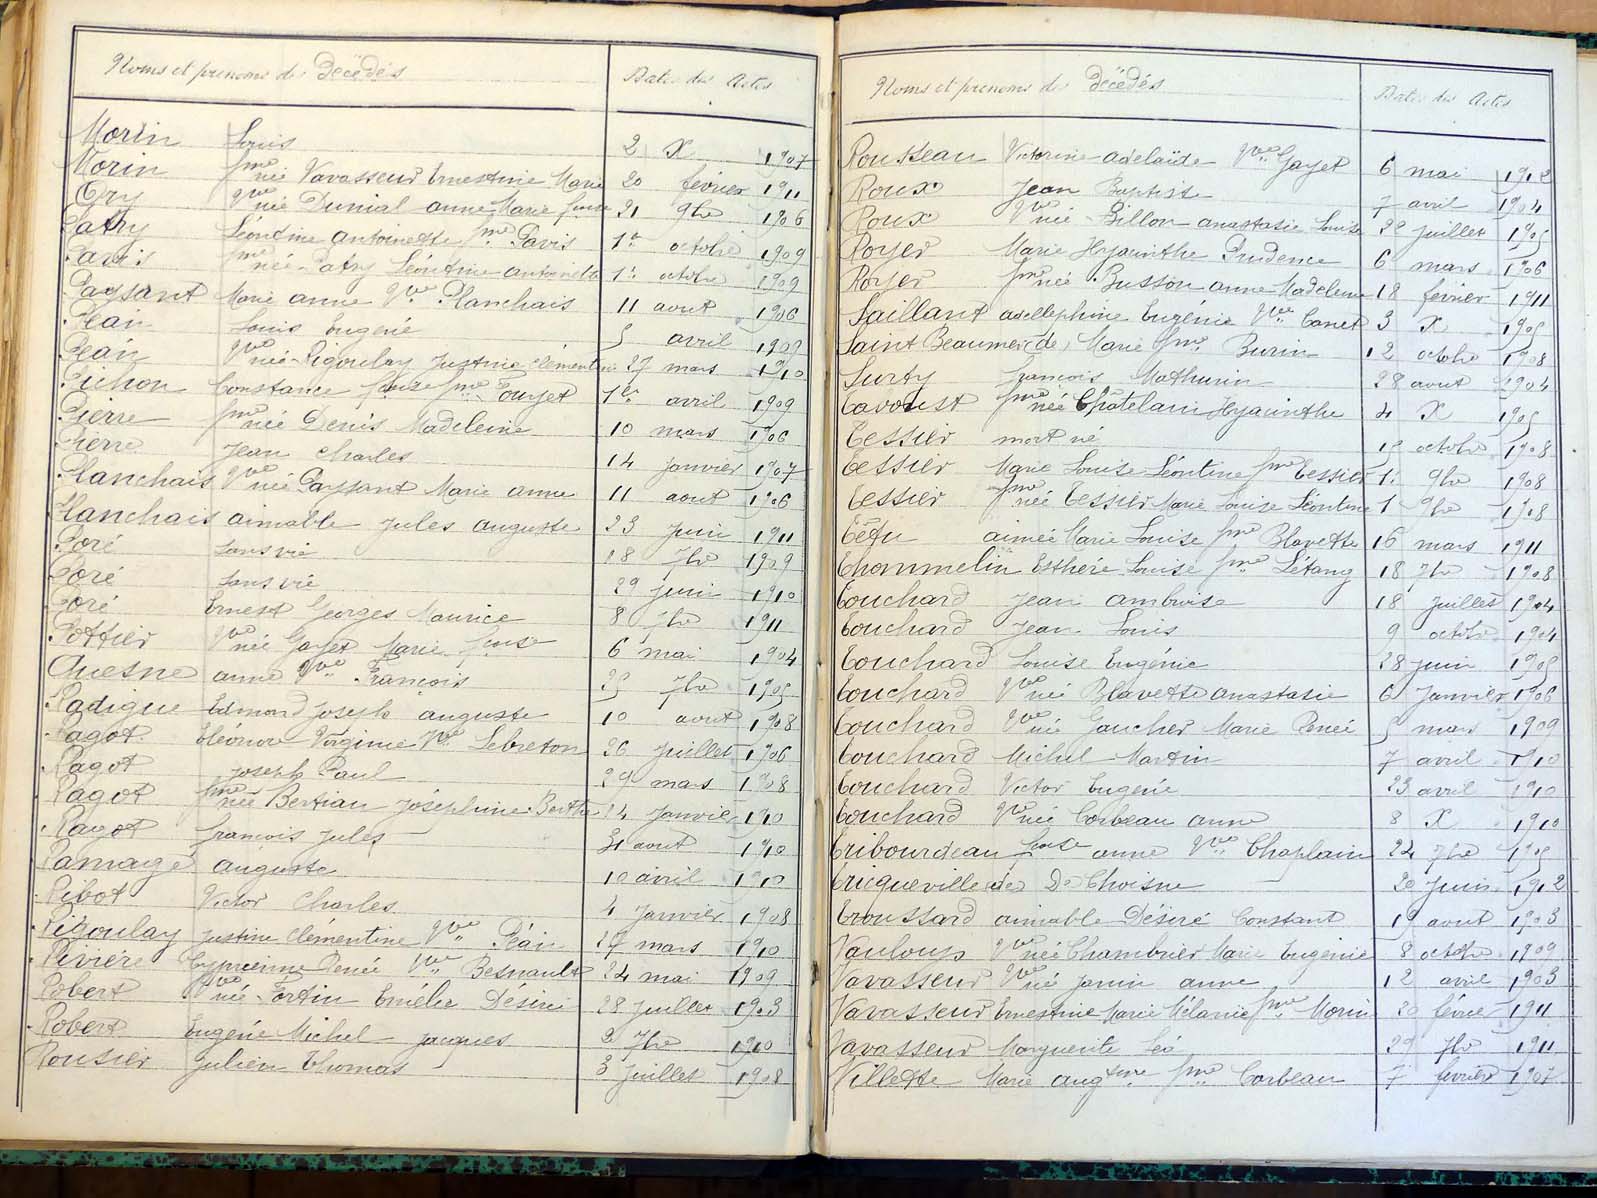 Noms et prenoms des Décédés Dates des Actes
Morin Louis 2 X 1907
Morin fme née Vavasseur Ernestine Marie 20 février 1911
Ory Vve née Dunial anne Marie 21 9bre 1906
Patry Léontine Antoinette fme Pavis 1er octobre 1909
Pavis fme née Patry Léontine antoinette 1er octobre 1909
Paysant Marie anne Vve Planchais 11 aout 1906
Péan Louis Eugène 5 avril 1909
Péan Vve née Rigoulay Justine Clémentine 27 mars 1910
Pichon Constance fme Fouyet 1er avril 1909
Pierre fme née Denis Madeleine 10 mars 1906
Pierre Jean Charles 14 Janvier 1907
Planchais Vve née Paysant Marie anne 11 aout 1906
Planchais aimable Jules auguste 23 Juin 1911
Poré sans vie 18 7bre 1909
Poré sans vie 29 juin 1910
Poré Ernest Georges Maurice 8 7bre 1911
Pottier Vve née Gayet Marie 6 mai 1904
Quesne anne Vve François 25 7bre 1905
Radigue Edmond Joseph auguste 10 aout 1908
Ragot Eléonor Virginie Vve Lebreton 26 Juillet 1906
Ragot Joseph Paul 29 mars 1908
Ragot fme née Bertian Joséphine Berthe 24 Janvier 1910
Ragot françois Jules 31 aout 1910
Ramage auguste 10 avril 1910
Ribot Victor Charles 4 Janvier 1908
Rigoulay Justine Clémentine Vve Péan 27 mars 1910
Rivière Cyprienne Renée Vve Besnault 24 mai 1909
Robert Vve née Fortin Emélie Désirée 28 Juillet 1903
Robert Eugène Michel Jacques 2 7bre 1910
Rousier Julien Thomas 3 Juillet 1908
Noms et prenoms des Décédés Dates des Actes
Rousseau Victorine adelaïde Vve Gayet 6 mai 1912
Roux Jean Baptiste 7 avril 1904
Roux Vve née Billon anastasie Louise 22 juillet 1905
Royer Marie Hyacinthe Prudence 6 mars 1906
Royer fme née Busson anne Madeleine 18 février 1911
Saillant adelphine Eugénie Vve Canet 3 X 1905
Saint Beaumer (de) Marie fme Burin 12 octobre 1908
Surty françois Mathurin 28 aout 1904
Tavoust fme née Châtelain Hyacinthe 4 X 1905
Tessier mort né 15 octobre 1908
Tessier Marie Louise Léontine fme Tessier 1er 9bre 1908
Tessier fme née Tessier Marie Louise Léontine 1 9bre 1908
Têtu aimée Marie Louise fme Blavette 16 mars 1911
Thommelin Esthère Louise fme Létang 18 7bre 1908
Touchard Jean ambroise 18 Juillet 1904
Touchard Jean Louis 9 octobre 1904
Touchard Louise Eugénie 28 juin 1905
Touchard Vve née Blavette anastasie 6 Janvier 1906
Touchard Vve née Gaucher Marie Renée 5 mars 1909
Touchard Michel Martin 7 avril 1910
Touchard Victor Eugène 23 avril 1910
Touchard Vve née Corbeau anne 8 X 1910
Tribourdeau anne Vve Chaplain 24 7bre 1905
Tricqueville (de) De Choisne 20 Juin 1912
Troussard aimable Désiré Constant 15 aout 1903
Vauloup Vve née Chambrier Marie Eugénie 8 octobre 1909
Vavasseur Vve née Janin anne 12 avril 1903
Vavasseur Ernestine Marie Mélanie fme Morin 20 février 1911
Vavasseur Marguerite Léa 29 7bre 1911
Villette Marie augtine fme Corbeau 7 février 1907